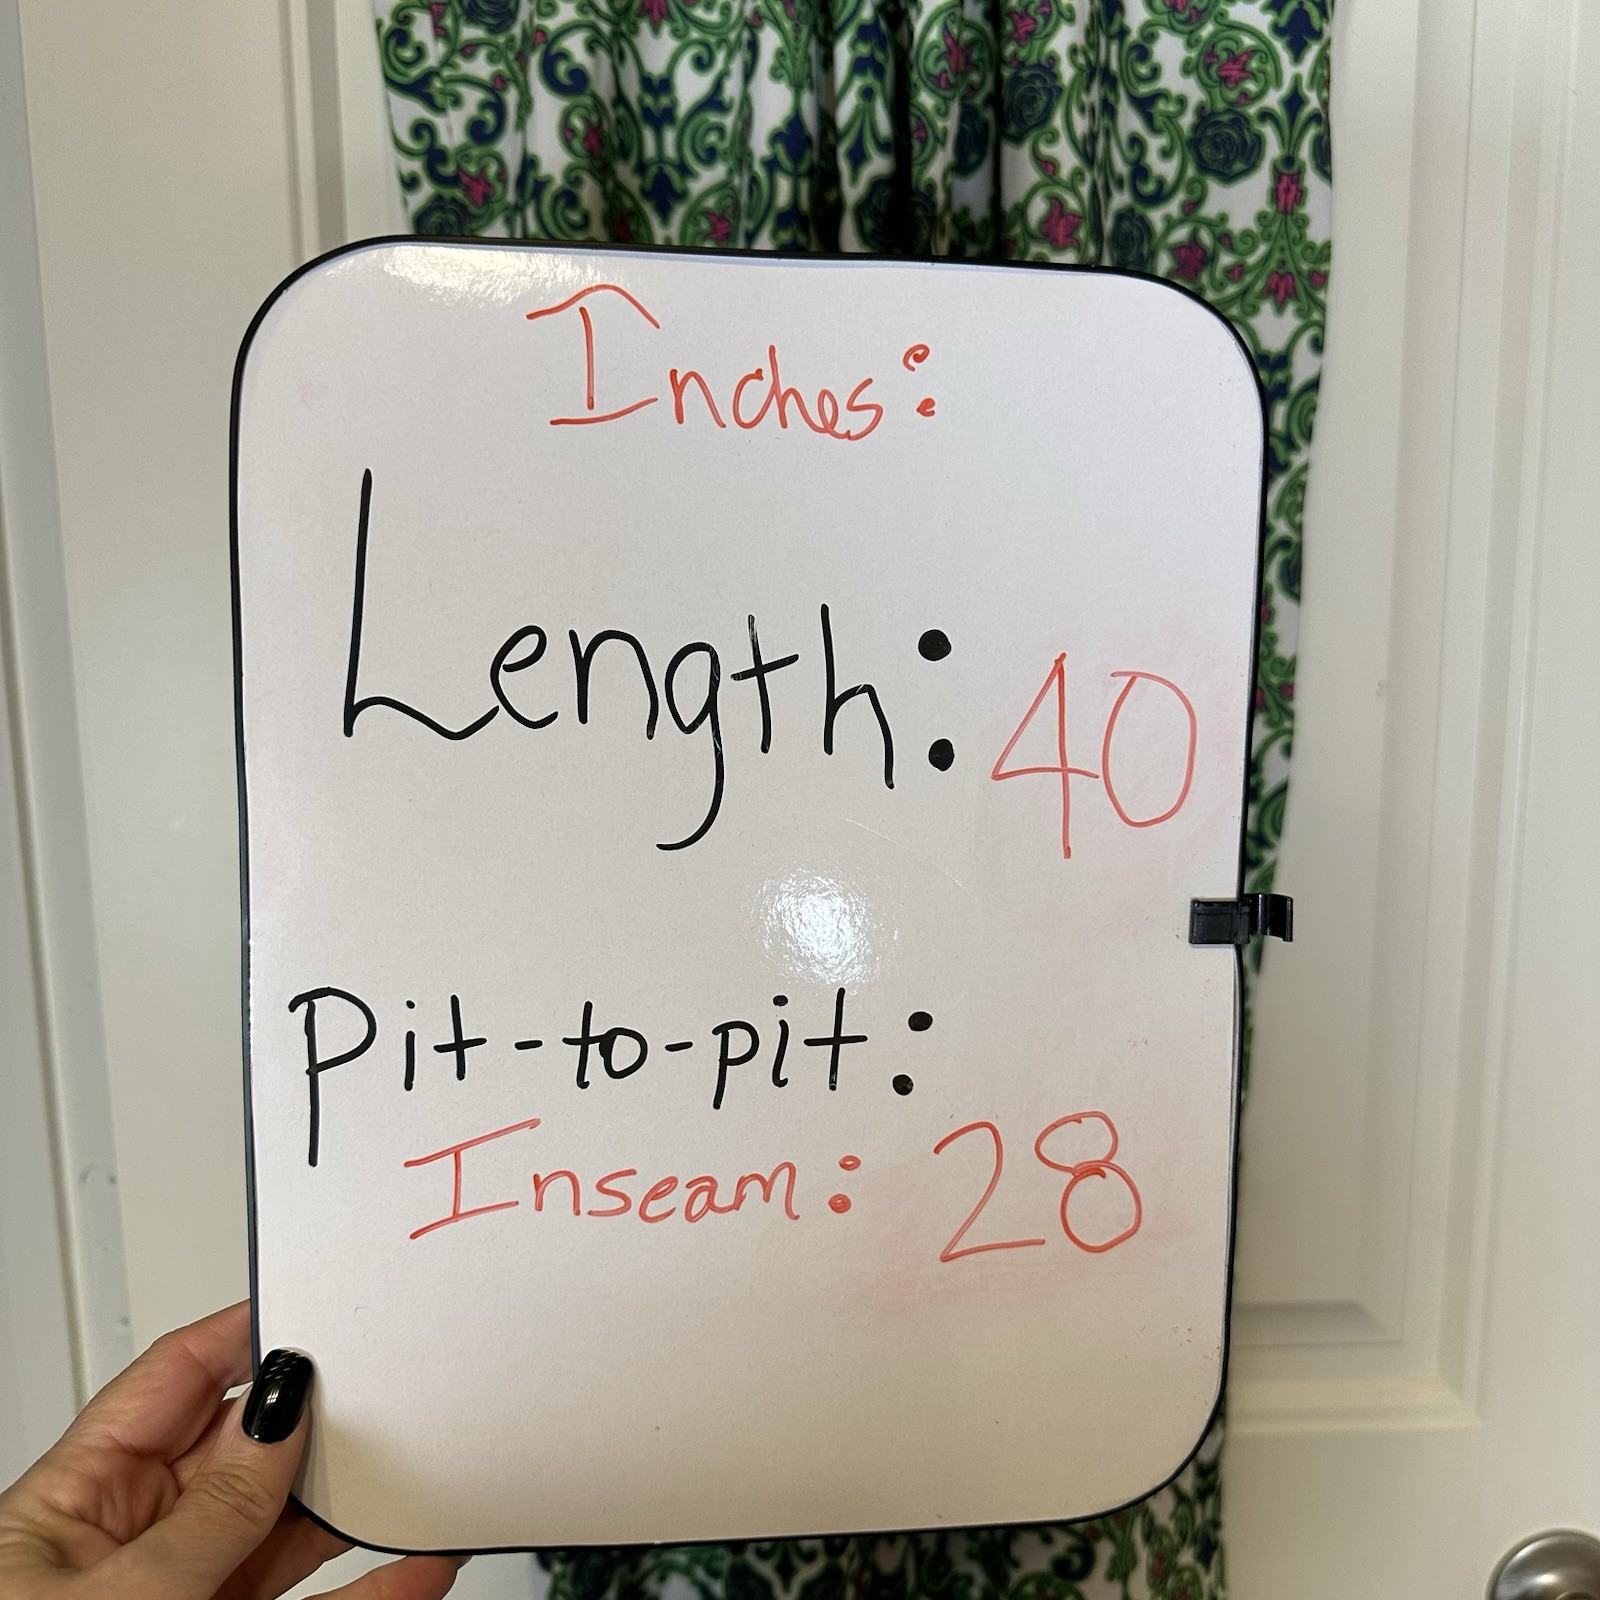 Inches:
Length: 40
Pit-to-pit:
Inseam: 28